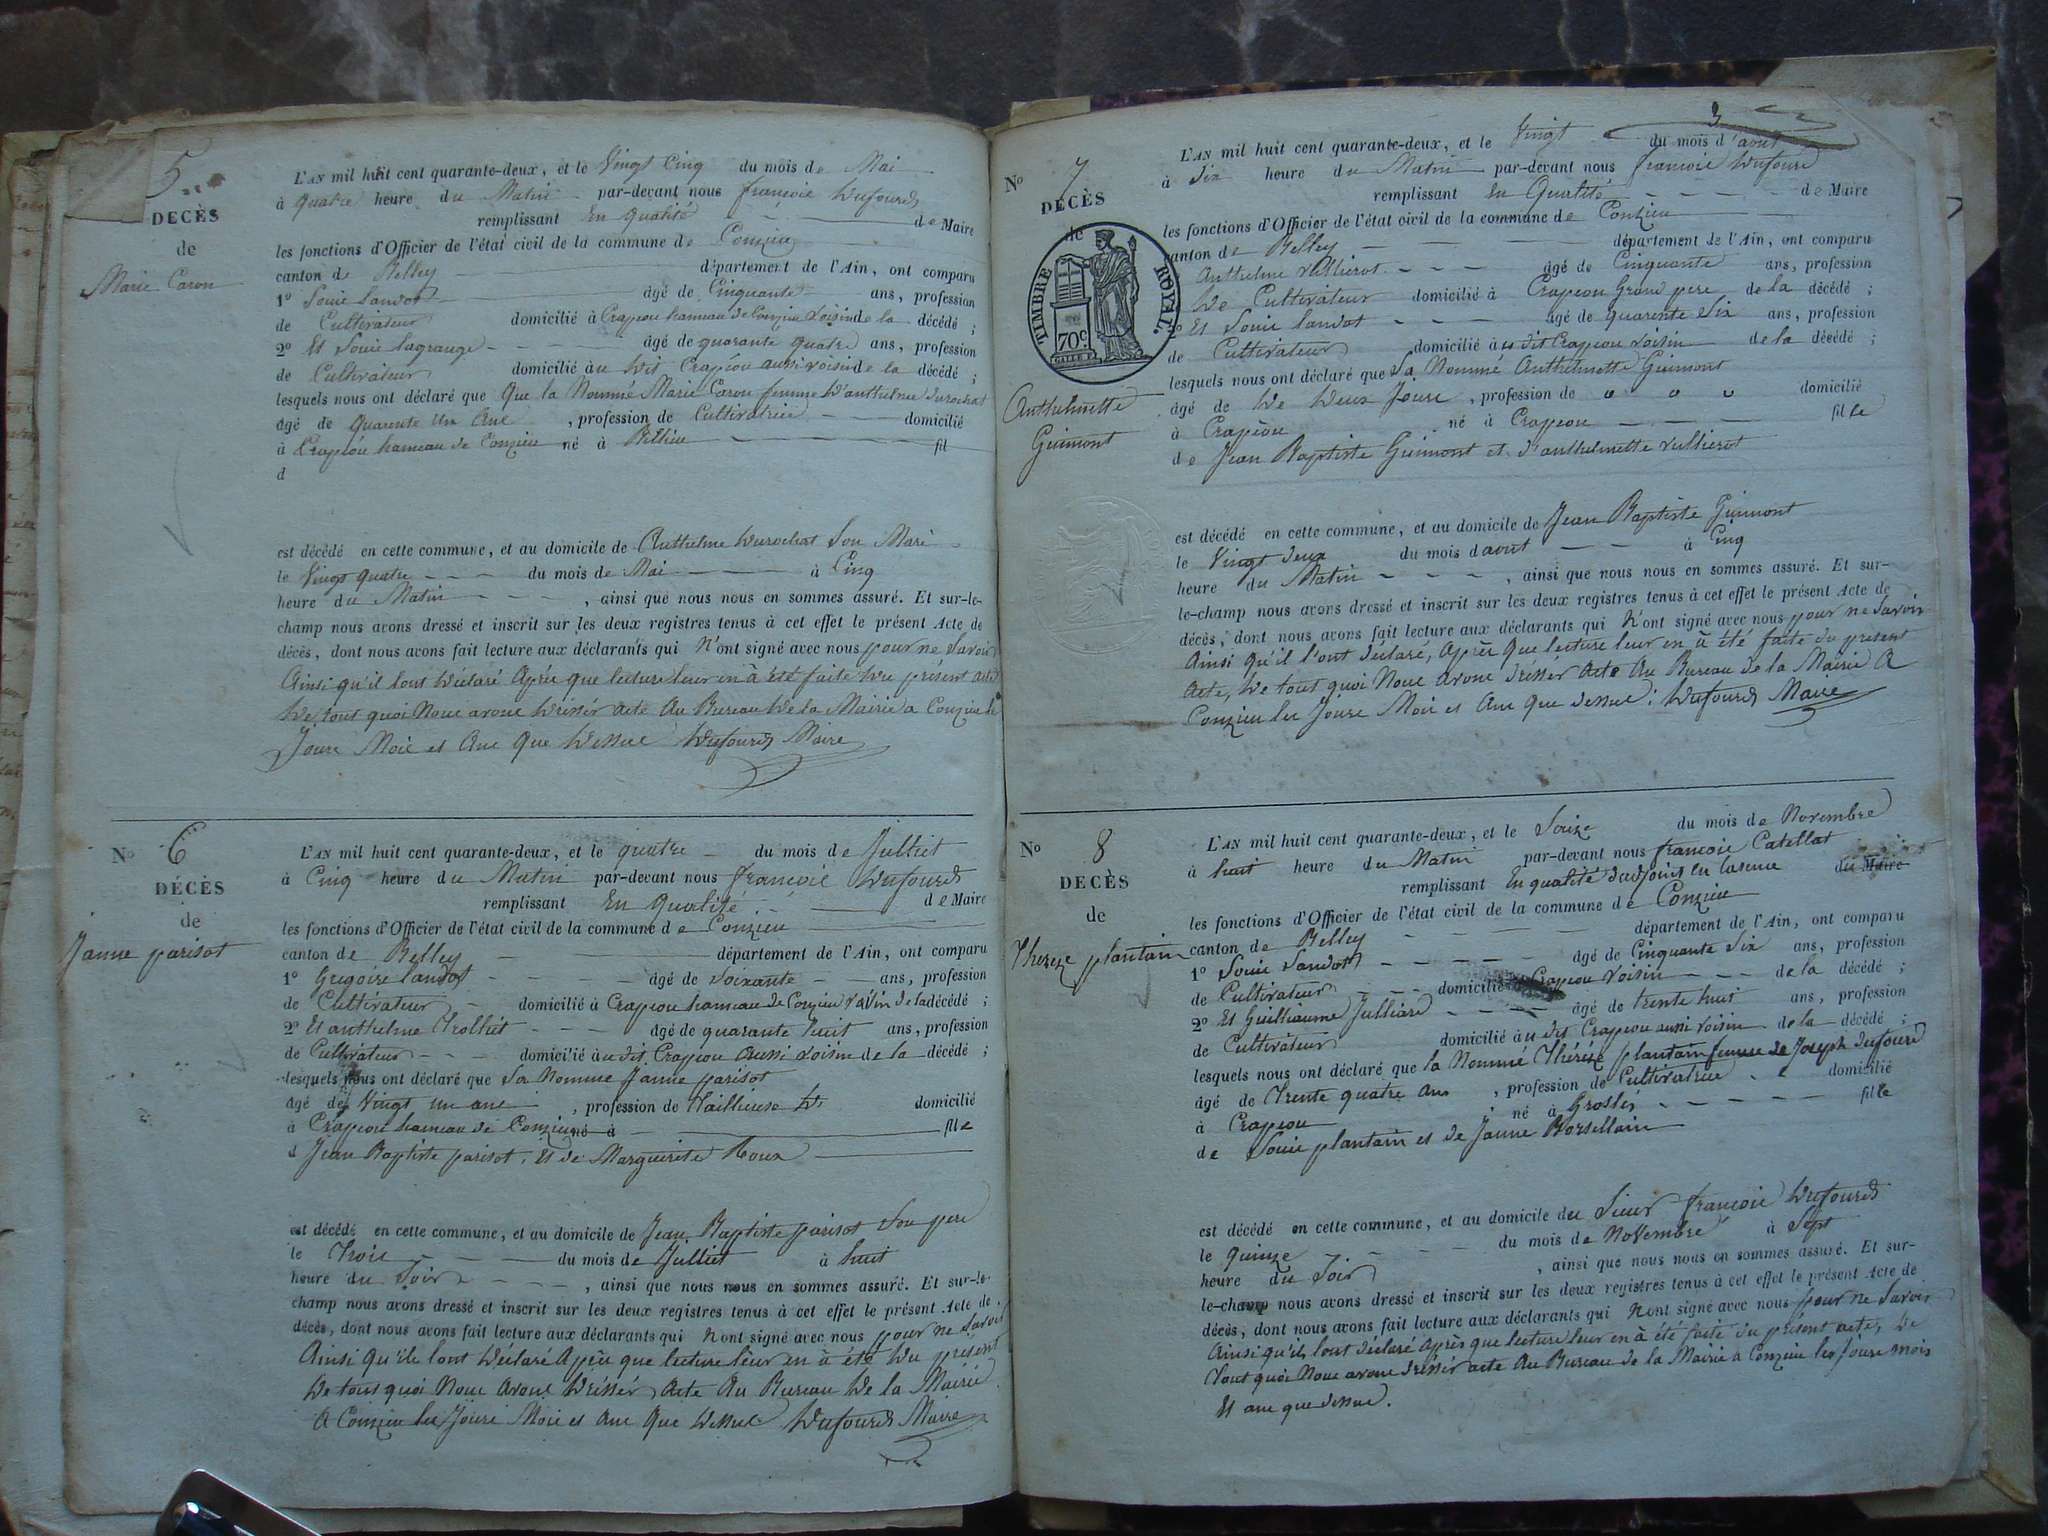 5
DECÈS
de
Marie Caron
L'AN mil huit cent quarante-deux, et le Vingt Cinq du mois de Mai
à quatre heure du Matin par-devant nous françois Dufourd
remplissant En qualité de Maire
les fonctions d'Officier de l'état civil de la commune de Conzieu
canton de Belley département de l'Ain, ont comparu
1º Louis Landot âgé de Cinquante ans, profession
de Cultivateur domicilié à Crapéou hameau de Conzieu Voisin de la décédé ;
2º Et Louis lagrange âgé de quarante quatre ans, profession
de Cultivateur domicilié au dit Crapéou aussi voisin de la décédé ;
lesquels nous ont déclaré que que la Nommé Marie Caron femme d'anthelme durochat
âgé de quarente un ans , profession de Cultivatrice domicilié
à Crapéou hameau de Conzieu né à fil
d
est décédé en cette commune, et au domicile de Anthelme durochat Son Mari
le Vingt quatre du mois de Mai à Cinq
heure du Matin , ainsi que nous nous en sommes assuré. Et sur-le-
champ nous avons dressé et inscrit sur les deux registres tenus à cet effet le présent Acte de
décès, dont nous avons fait lecture aux déclarants qui N'ont signé avec nous pour ne Savoir
Ainsi qu'il l'ont déclaré Après que lecture leur en à été faite du présent acte
De tout quoi Nous avons dressér acte Au Bureau de la Mairie a Conzieu le
Jours Mois et Ans Que dessus Dufourd Maire
No 6
DÉCÈS
de
Janne parisot
L'AN mil huit cent quarante-deux, et le quatre du mois de Julliet
à Cinq heure du Matin par-devant nous françois Dufourd
remplissant En Qualité de Maire
les fonctions d'Officier de l'état civil de la commune de Conzieu
canton de Belley département de l'Ain, ont comparu
1º Gregoire landot âgé de Soixante ans, profession
de Cultivateur domicilié à Crapeou hameau de Conzieu voisin de la décédé ;
2º Et anthelme Trolliet âgé de quarante huit ans, profession
de Cultivateur domicilié au dit Crapeou aussi voisin de la décédé ;
lesquels nous ont déclaré que La Nommé Janne parisot
âgé de Vingt un ans , profession de Tailleuse domicilié
à Crapeou hameau de Conzieu né à file
d Jean Baptiste parisot, Et de Marguerite Roux
est décédé en cette commune, et au domicile de Jean Baptiste parisot Son pere
le Trois du mois de Julliet à huit
heure du Soir , ainsi que nous nous en sommes assuré. Et sur-le-
champ nous avons dressé et inscrit sur les deux registres tenus à cet effet le présent Acte de
décès, dont nous avons fait lecture aux déclarants qui Nont signé avec nous pour ne Savoir
Ainsi Qu'ils lont déclaré Après que lecture leur en à été du présent
De tout quoi Nous avons dressér acte Au Bureau de la Mairie
A Conzieu les Jours Mois et Ans Que dessus Dufourd Maire
3
No 7
DÉCÈS
de
TIMBRE ROYAL.
70c
Anthelmette
Guimont
L'AN mil huit cent quarante-deux, et le Vingt du mois d'aout
à Six heure du Matin par-devant nous françois Dufourd
remplissant En Qualité de Maire
les fonctions d'Officier de l'état civil de la commune de Conzieu
canton de Belley département de l'Ain, ont comparu
Anthelme Vullierot âgé de Cinquante ans, profession
de Cultivateur domicilié à Crapeou Grand pere de la décédé ;
2º Et Louis Landot âgé de quarente Six ans, profession
de Cultivateur domicilié au dit Crapeou voisin de la décédé ;
lesquels nous ont déclaré que La Nommé Anthelmette Guimont
âgé de De Deux Jours , profession de domicilié
à Crapéou né à Crapeou fille
de Jean Baptiste Guimont et d'anthelmette Vullierot
est décédé en cette commune, et au domicile de Jean Baptiste Guimont
le Vingt deux du mois d aout à Cinq
heure du Matin , ainsi que nous nous en sommes assuré. Et sur-
le-champ nous avons dressé et inscrit sur les deux registres tenus à cet effet le présent Acte de
décès, dont nous avons fait lecture aux déclarants qui N'ont signé avec nous pour ne Savoir
Ainsi qu'il l'ont déclaré, Après Que lecture leur en à été faite du présent
Acte, De tout quoi Nous avons dréssér acte Au Bureau de la Mairie A
Conzieu les Jours Mois et Ans Que dessus. Dufourd Maire
No 8
DECÈS
de
Thereze plantain
L'AN mil huit cent quarante-deux, et le Seize du mois de Novembre
à huit heure du Matin par-devant nous françois Catellat
remplissant En qualité d'adjoint du Maire
les fonctions d'Officier de l'état civil de la commune de Conzieu
canton de Belley département de l'Ain, ont comparu
1º Louis Landot âgé de Cinquante Six ans, profession
de Cultivateur domicilié à Crapeou Voisin de la décédé ;
2º Et Guilliaume Julliard âgé de trente huit ans, profession
de Cultivateur domicilié au dit Crapeou aussi voisin de la décédé ;
lesquels nous ont déclaré que la Nommé Thérèze plantain femme de Joseph dufourd
âgé de Trente quatre ans , profession de Cultivatrice domicilié
à Crapeou né à Groslés fille
de Louis plantain et de Janne Borsellain
est décédé en cette commune, et au domicile du Sieur françois Dufourd
le quinze du mois de Novembre à Sept
heure du Soir , ainsi que nous nous en sommes assuré. Et sur-
le-champ nous avons dressé et inscrit sur les deux registres tenus à cet effet le présent Acte de
décès, dont nous avons fait lecture aux déclarants qui Nont signé avec nous pour ne Savoir
Ainsi qu'ils lont déclaré Après que lecture leur en à été faite du présent acte, De
Tout quoi Nous avons dressér acte Au Bureau de la Mairie a Conzieu les Jours mois
Et ans que dessus.